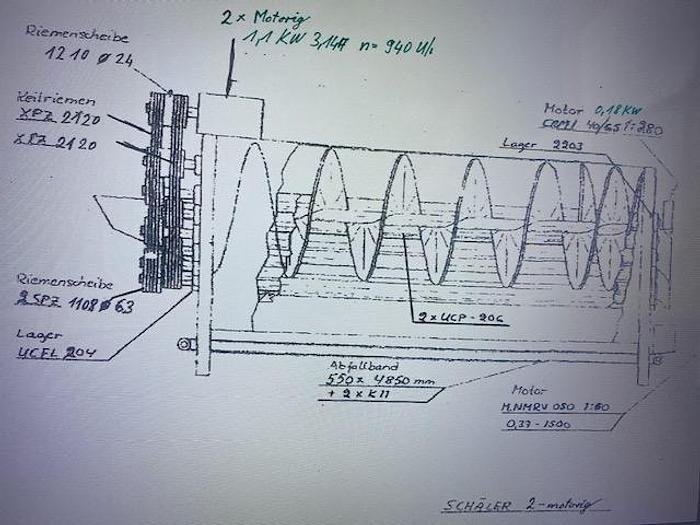 2 x Motorig
1,1 KW 3,14A n= 940 U/i
Riemenscheibe
1210 ø 24
Keilriemen
XPZ 2120
XPZ 2120
Motor 0,18KW
40/65 1:280
Lager 2203
Riemenscheibe
2 SPZ 1108 ø 63
Lager
UCFL 204
2 x UCP - 206
Abfallband
550 x 4850 mm
+ 2 x K11
Motor
M.NMRV 050 1:60
0,37 - 1500
SCHÄLER 2-motorig